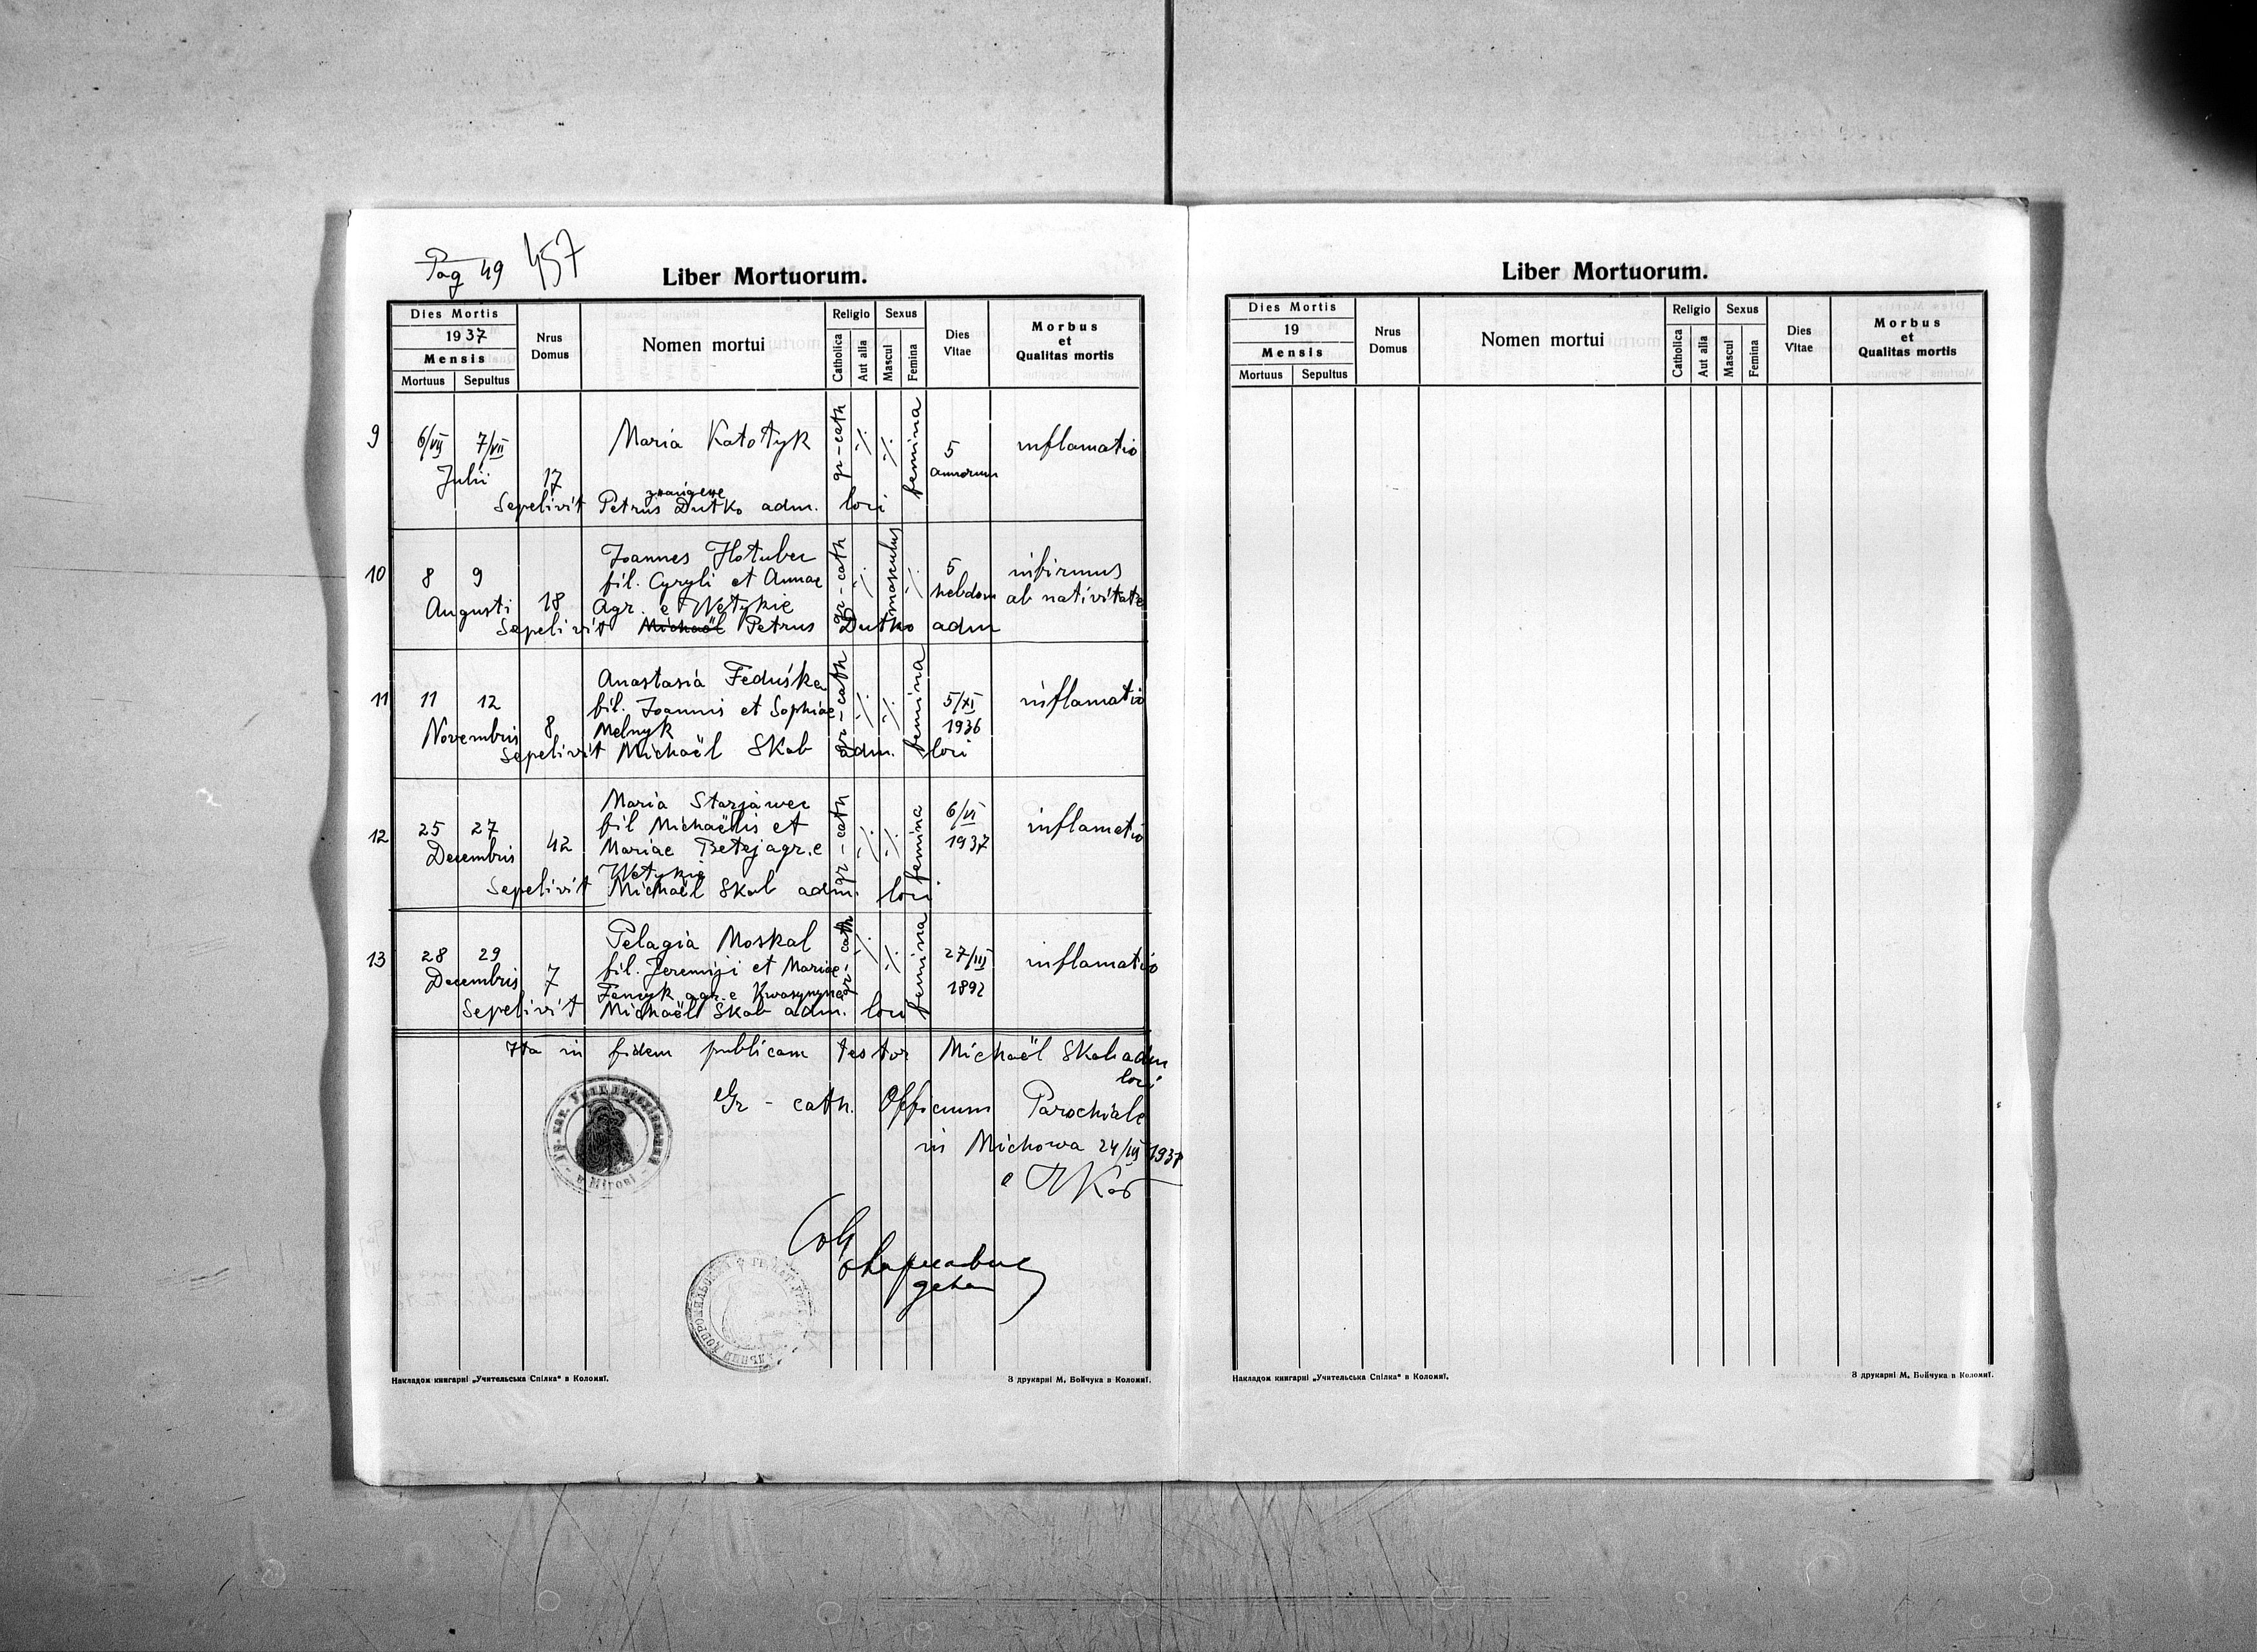 Pag 49 457
Liber Mortuorum.
Dies Mortis
1937
Mensis
Mortuus Sepultus
Nrus
Domus
Nomen mortui
Religio
Catholica
Aut alia
Sexus
Mascul
Femina
Dies
Vitae
Morbus
et
Qualitas mortis
9 6/VII 7/VII Maria Katotyk gr-cath ·/· ·/· femina 5 inflamatio
Julii 17 annorum
Sepelivit Petrus Dutko adm. loci
10 8 9 Joannes Hotuber gr-cath ·/· masculus ·/· 5 infirmus
fil. Cyryli et Annae hebdom ab nativitate
Augusti 18 agr. e Wetykie
Sepelivit Michaël Petrus Dutko adm
11 11 12 Anastasia Feduśka gr-cath ·/· ·/· femina 5/XI inflamatio
fil. Joannis et Sophiae 1936
Novembris 8 Melnyk
Sepelivit Michaël Skab adm. loci
12 25 27 42 Maria Starjawec gr-cath ·/· ·/· femina 6/VI inflamatio
fil Michaëlis et 1937
Decembris Mariae Betej agr. e
Wetykie
Sepelivit Michaël Skab adm. loci
13 28 29 Pelagia Moskal gr-cath ·/· ·/· femina 27/III inflamatio
fil. Jeremiji et Mariae 1892
Decembris 7 Fencyk agr. e Kwasynyna
Sepelivit Michaël Skab adm. loci
Ita in fidem publicam testor Michaël Skab adm
loci
Gr - cath. Officium Parochiale
in Michowa 24/III 1937
Гр. кат. Уряд парохіяльний
в Міхові
Накладом книгарні „Учительська Спілка" в Коломиї.
З друкарні М. Бойчука в Коломиї.
Liber Mortuorum.
Dies Mortis
19
Mensis
Mortuus Sepultus
Nrus
Domus
Nomen mortui
Religio
Catholica
Aut alia
Sexus
Mascul
Femina
Dies
Vitae
Morbus
et
Qualitas mortis
Накладом книгарні „Учительська Спілка" в Коломиї.
З друкарні М. Бойчука в Коломиї.